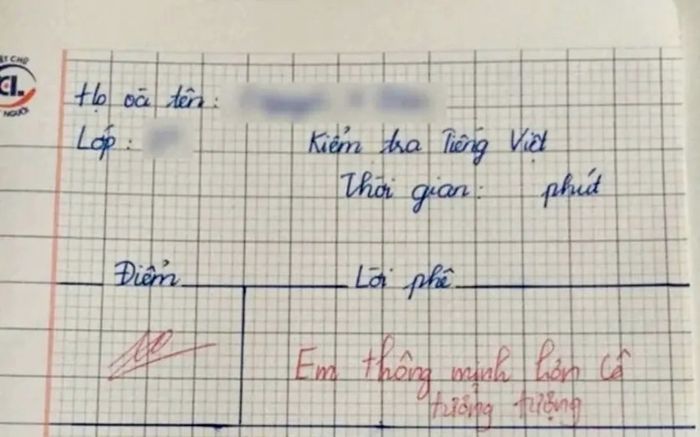 ẾT CHỮ
CL
NGƯỜI
Họ và tên:
Lớp:
Kiểm tra Tiếng Việt
Thời gian: phút
Điểm
Lời phê
10
Em thông minh hơn Cô
tưởng tượng